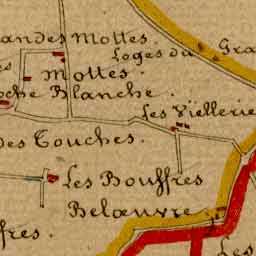 andes Mottes.
Loges du Gra
es
Mottes.
oche Blanche.
Les Viellerie
des Touches.
Les Bouffres
Belœuvre
fres.
Les